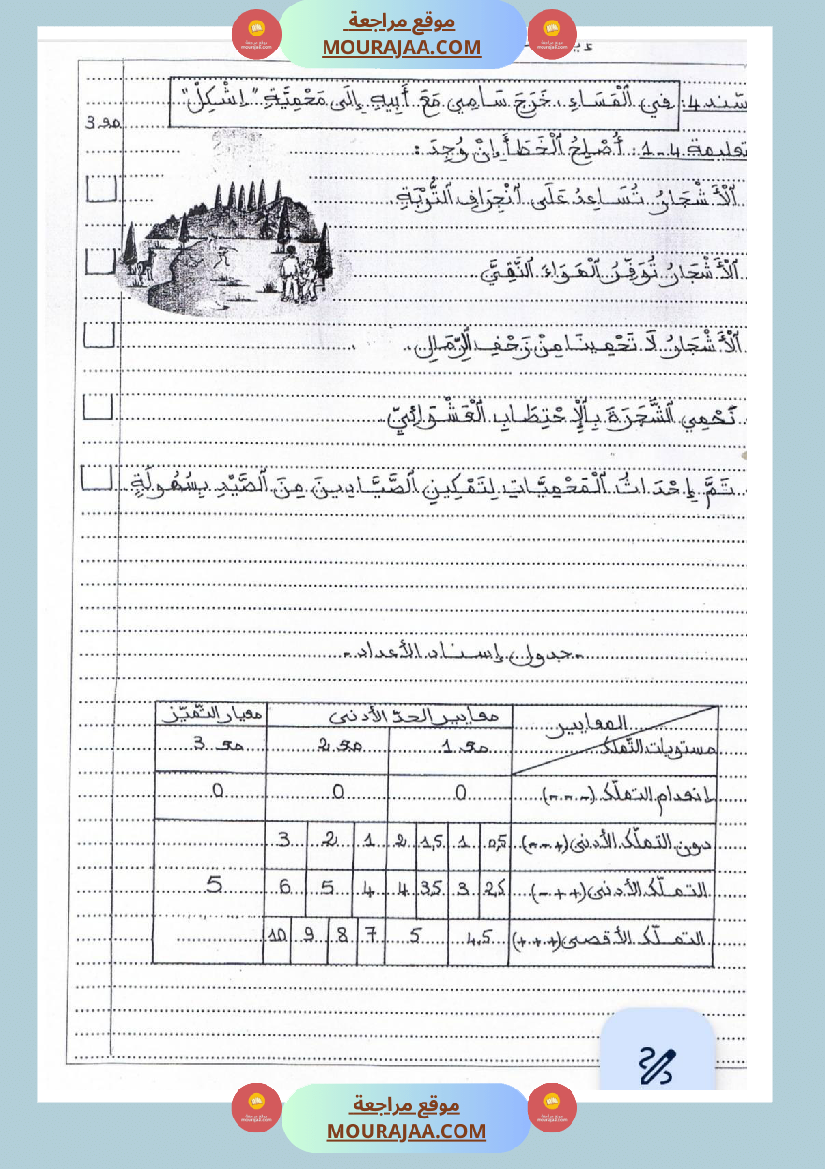 موقع مراجعة
MOURAJAA.COM
سَند 4: فِي ٱلْمَسَاءِ، خَرَجَ سَامِي مَعَ أَبِيهِ إِلَى مَحْمِيَّةِ "إِشْكِلْ"
مع 3
تعليمة 4-1: أُصْلِحُ ٱلْخَطَأَ إِنْ وُجِدَ:
ٱلْأَشْجَارُ تُسَاعِدُ عَلَى ٱنْجِرَافِ ٱلتُّرْبَةِ.
ٱلْأَشْجَارُ تُوَفِّرُ ٱلْهَوَاءَ ٱلنَّقِيَّ.
ٱلْأَشْجَارُ لَا تَحْمِينَا مِنْ زَحْفِ ٱلرِّمَالِ.
نَحْمِي ٱلشَّجَرَةَ بِٱلْإِحْتِطَابِ ٱلْعَشْوَائِيِّ.
تَمَّ إِحْدَاثُ ٱلْمَحْمِيَّاتِ لِتَمْكِينِ ٱلصَّيَّادِينَ مِنَ ٱلصَّيْدِ بِسُهُولَةٍ
- جدول إسناد الأعداد -
المعايير معايير الحدّ الأدنى معيار التّميّز
مستويات التّملك مع 1 مع 2 مع 3
انعدام التملّك (---) 0 0 0
دون التملّك الأدنى (+--) 0,5 1 1,5 2 1 2 3
التملّك الأدنى (++-) 2,5 3 3,5 4 4 5 6 5
التملّك الأقصى (+++) 4,5 5 7 8 9 10
موقع مراجعة
MOURAJAA.COM